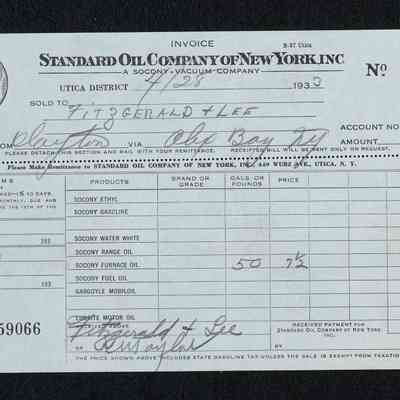 INVOICE B-37 Utica
STANDARD OIL COMPANY OF NEW YORK, INC.
A SOCONY-VACUUM COMPANY
No
UTICA DISTRICT 4/28 1933
SOLD TO FITZGERALD & LEE
ACCOUNT NO
OM Clayton VIA Alex Bay Ny AMOUNT
PLEASE DETACH THIS SECTION AND MAIL WITH YOUR REMITTANCE. RECEIPTED BILL WILL BE SENT ONLY ON REQUEST.
Please Make Remittance to STANDARD OIL COMPANY OF NEW YORK, INC. 449 WURZ AVE., UTICA, N. Y.
MS PRODUCTS BRAND OR GRADE GALS. OR POUNDS PRICE
SOCONY ETHYL
SOCONY GASOLINE
193 SOCONY WATER WHITE
SOCONY RANGE OIL
SOCONY FURNACE OIL 50 7½
193 SOCONY FUEL OIL
GARGOYLE MOBILOIL
59066
LUBRITE MOTOR OIL
RECEIVED ABOVE
Fitzgerald & Lee
RECEIVED PAYMENT FOR
STANDARD OIL COMPANY OF NEW YORK
INC.
BY
BY
THE PRICE SHOWN ABOVE INCLUDES STATE GASOLINE TAX UNLESS THE SALE IS EXEMPT FROM TAXATION